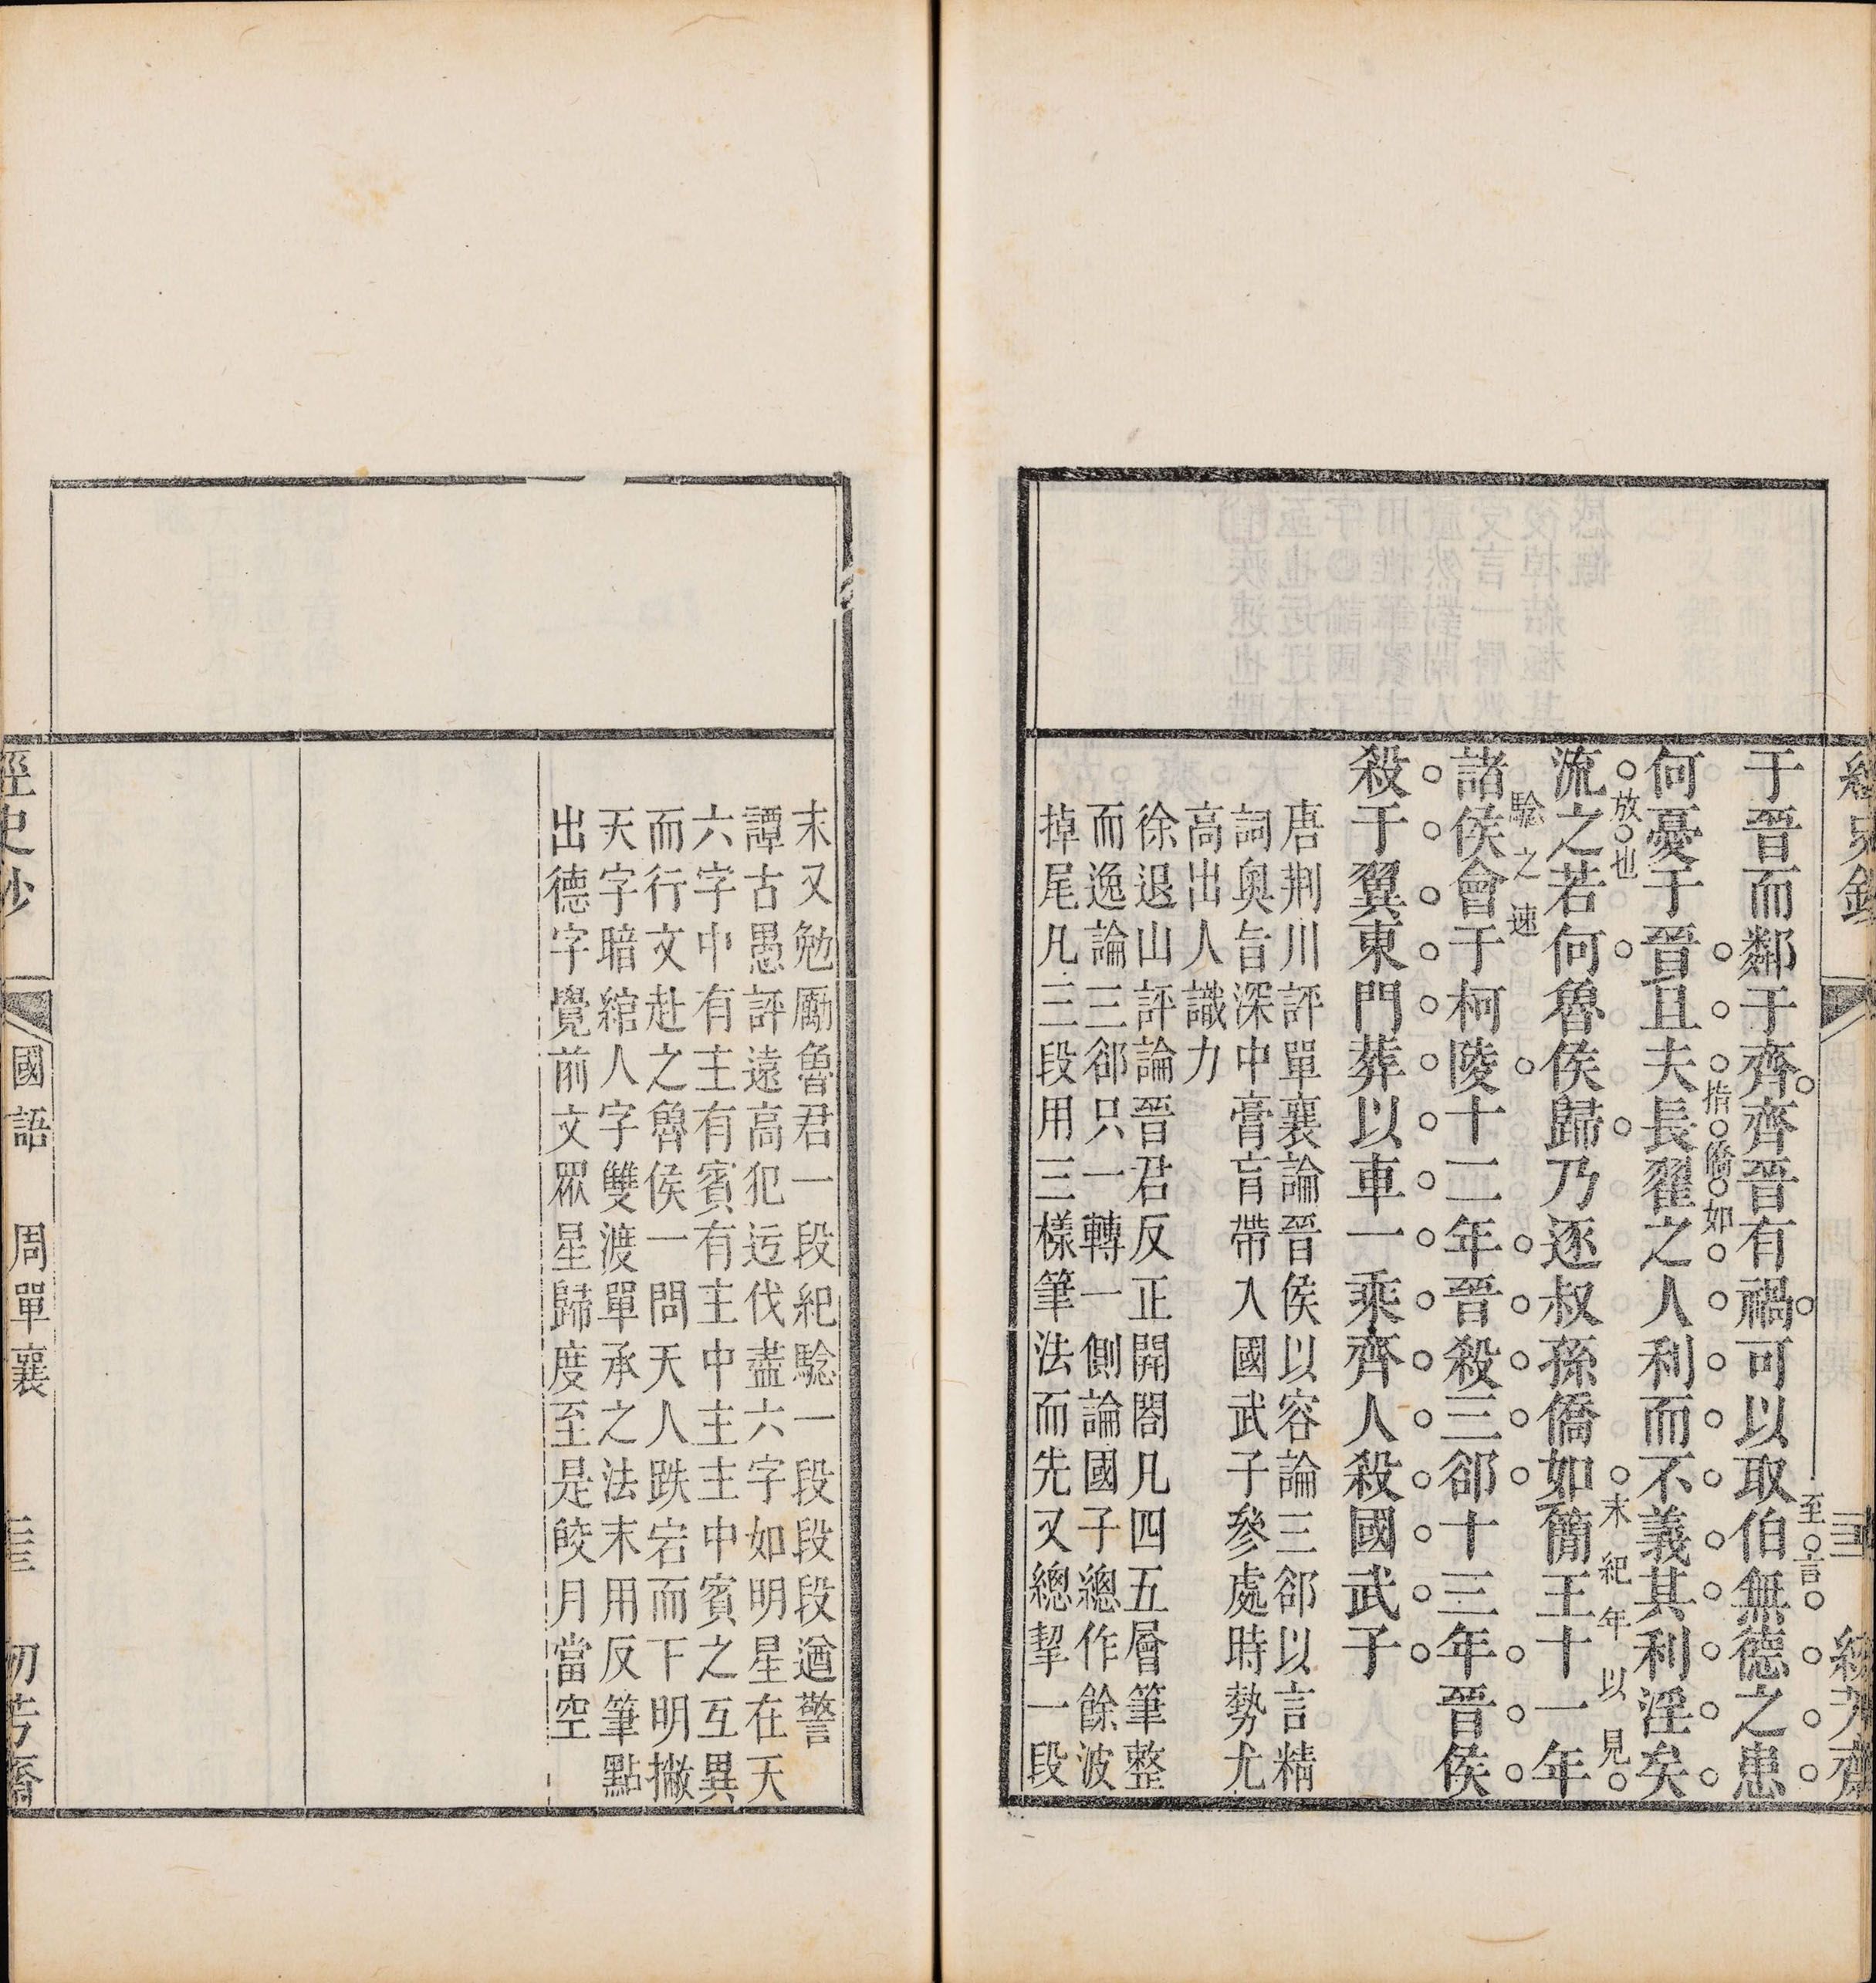 于晉而鄰于齊齊晉有禍可以取伯無德之患
至言
何憂于晉且夫長翟之人利而不義其利淫矣
指僑如
流之若何魯侯歸乃逐叔孫僑如簡王十一年
放也
末紀年以見
諸侯會于柯陵十二年晉殺三郤十三年晉侯
騐之速
殺于翼東門葬以車一乘齊人殺國武子
唐荆川評單襄論晉侯以容論三郤以言精
詞奥旨深中膏肓帶入國武子參處時勢尤
高出人識力
徐退山評論晉君反正開閤凡四五層筆整
而逸論三郤只一轉一側論國子總作餘波
掉尾凡三段用三樣筆法而先又總挈一段
末又勉勵魯君一段紀騐一段段段遒警
譚古愚評遠高犯迃伐盡六字如明星在天
六字中有主有賓有主中主主中賓之互異
而行文赴之魯侯一問天人跌宕而下明撇
天字暗綰人字雙渡單承之法末用反筆點
出德字覺前文眾星歸度至是皎月當空
經史鈔
國語
周單襄